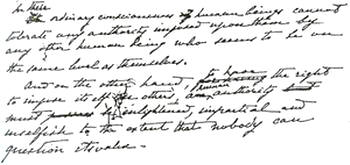 In their
ordinary consciousness human beings cannot
tolerate any authority imposed upon them by
any other human being who seems to be on
the same level as themselves.
And on the other hand, to have the right
to impose itself on others, human authority
must be enlightened, impartial and
unselfish to the extent that nobody can
question its value.